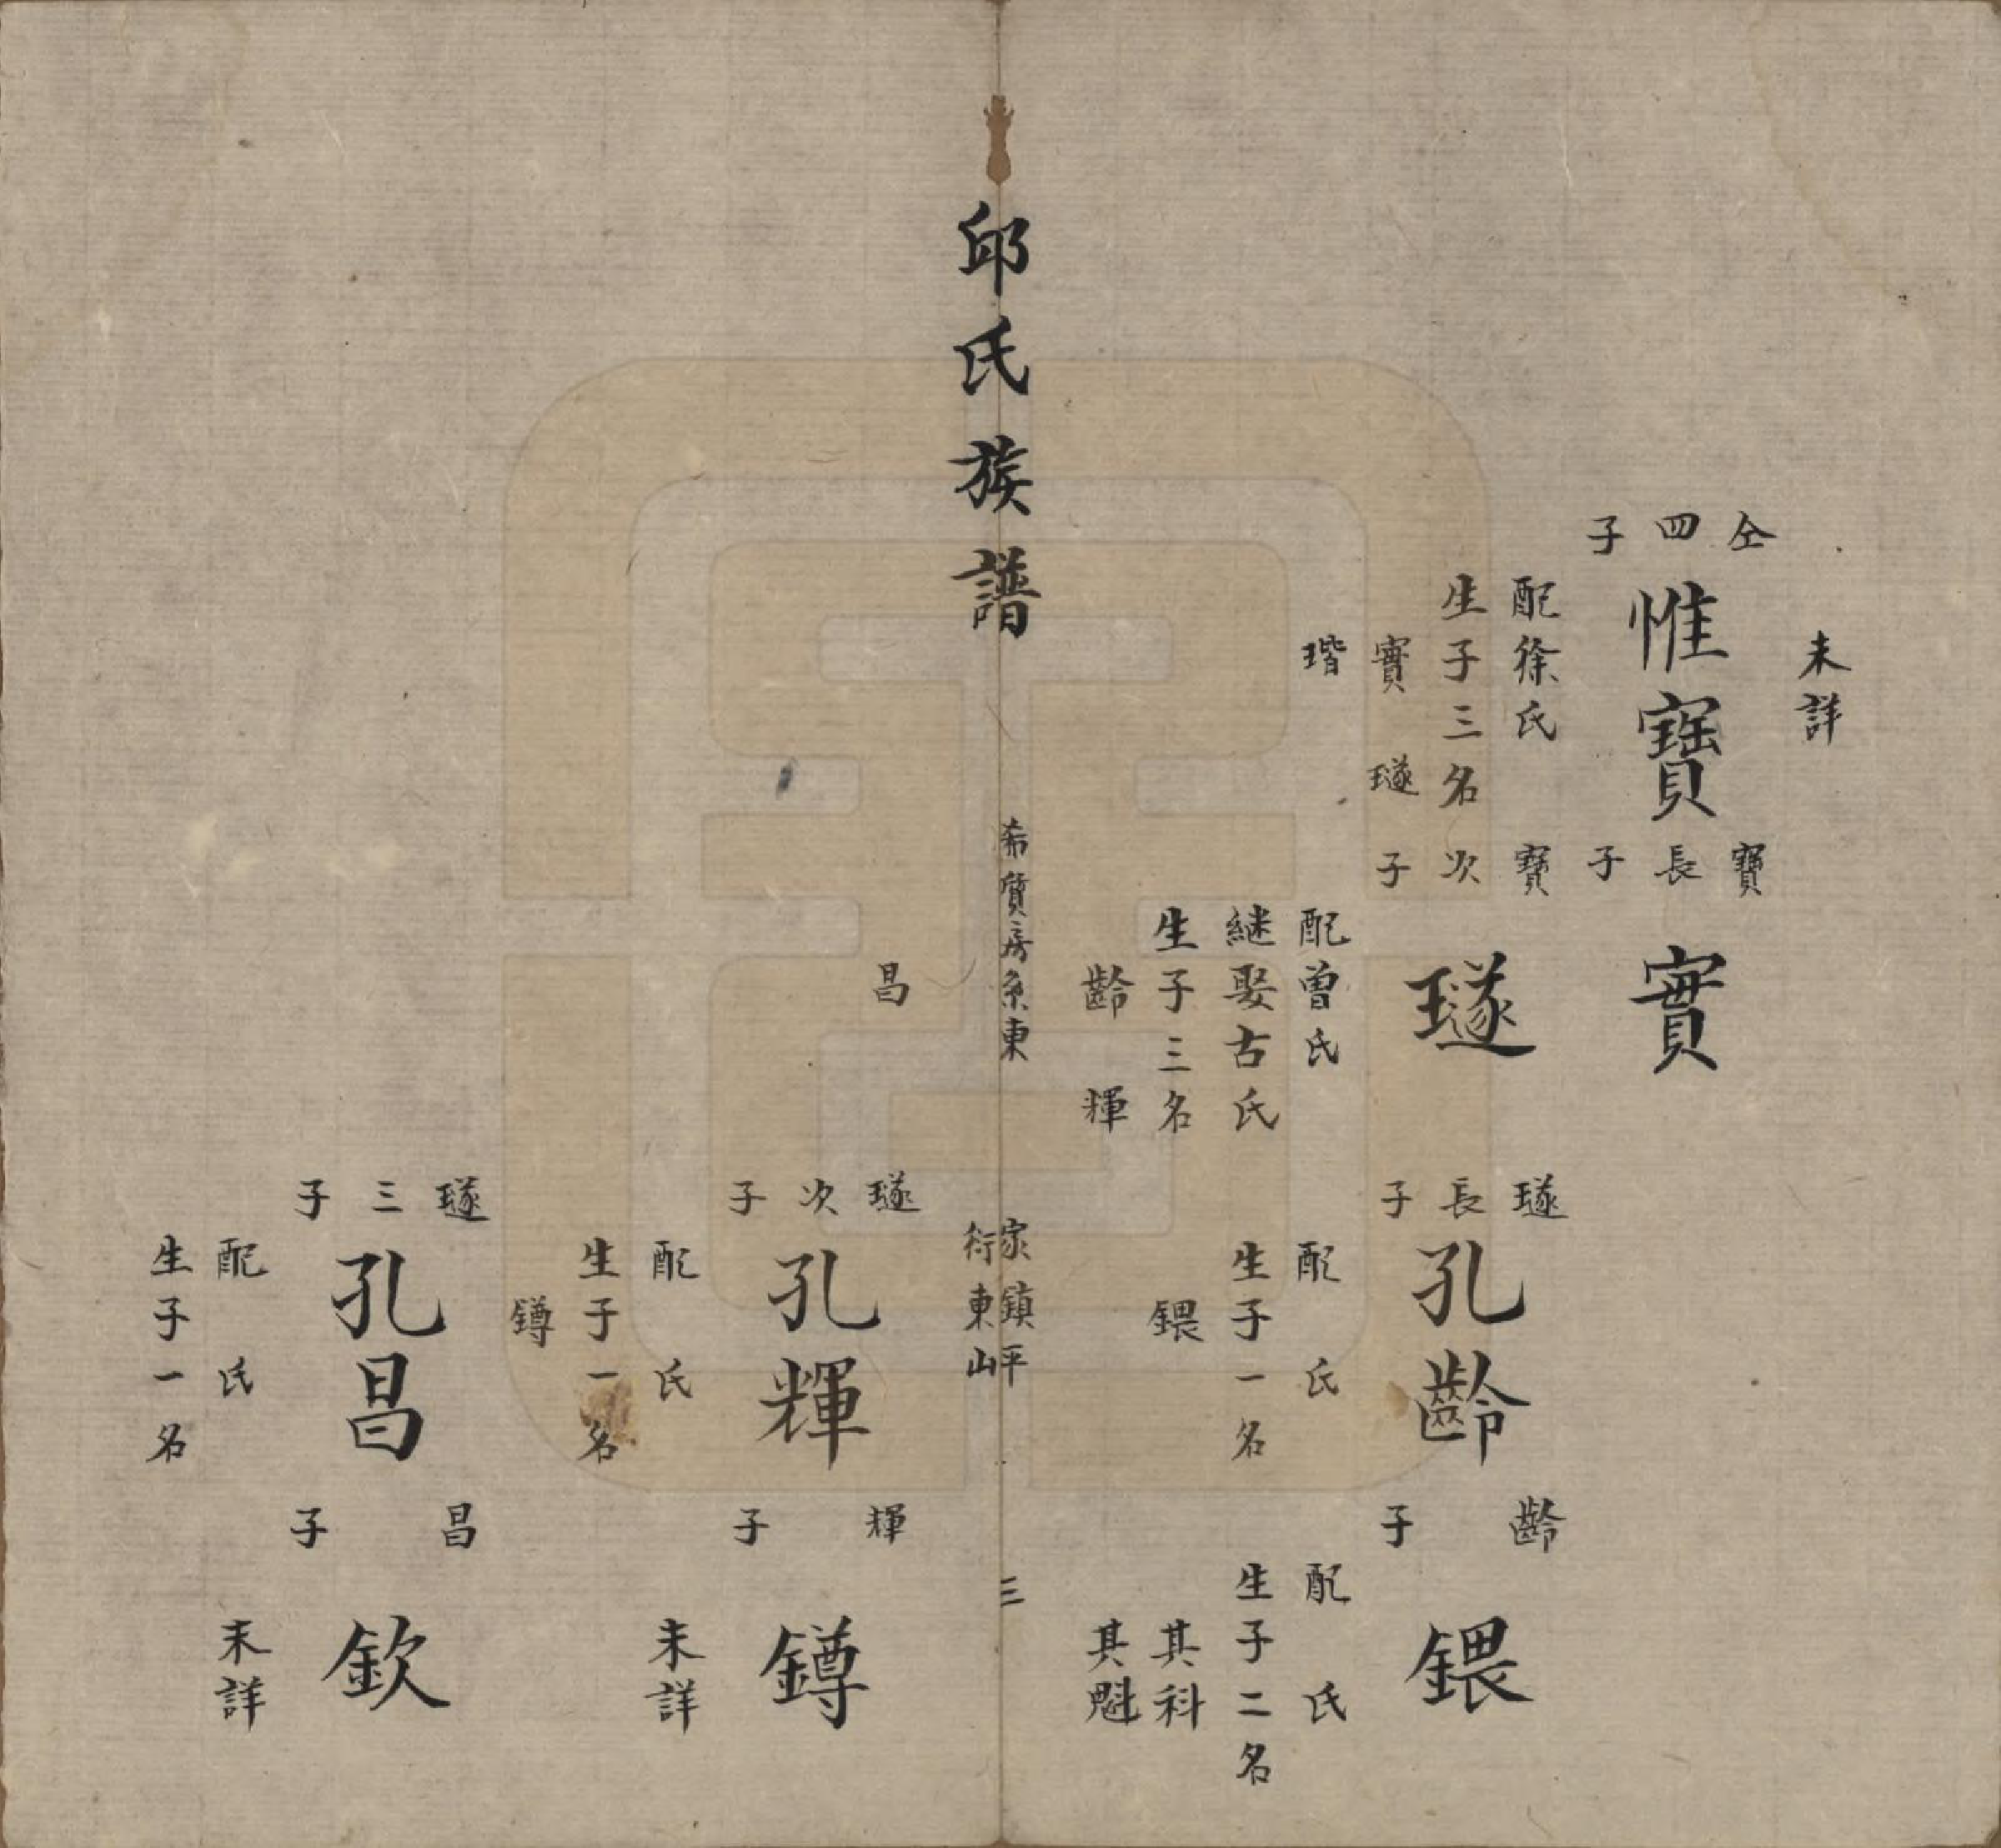 未詳
仝四子
惟寶
配徐氏
生子三名
實 璲
瑎
寶長子
實
寶次子
璲
配曾氏
継娶古氏
生子三名
齡 輝
昌
璲長子
孔齡
配 氏
生子一名
鍡
齡 子
鍡
配 氏
生子二名
其科
其魁
邱氏族譜
希質房系東
家鎮平
衍東山
三
璲次子
孔輝
配 氏
生子一名
鐏
輝 子
鐏
未詳
璲三子
孔昌
配 氏
生子一名
昌 子
欽
未詳